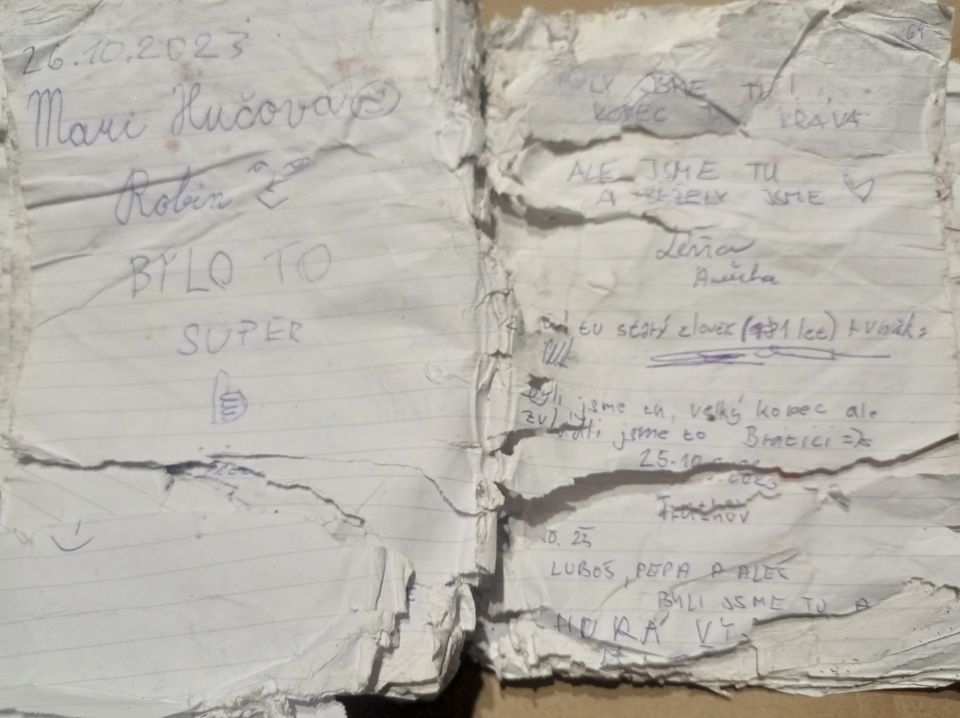 26.10.2023
Mari Hučová
Robin
BYLO TO
SUPER
64
BYLY JSME TU!
KOPEC KRÁVA
ALE JSME TU
A BĚŽELY JSME
Anička
tu starý člověk
byli jsme tu, velký kopec ale
zvládli jsme to Bratříci =)
25.10.2023
Trutnov
LUBOŠ, PEPA A ALEŠ
BYLI JSME TU A
HURÁ